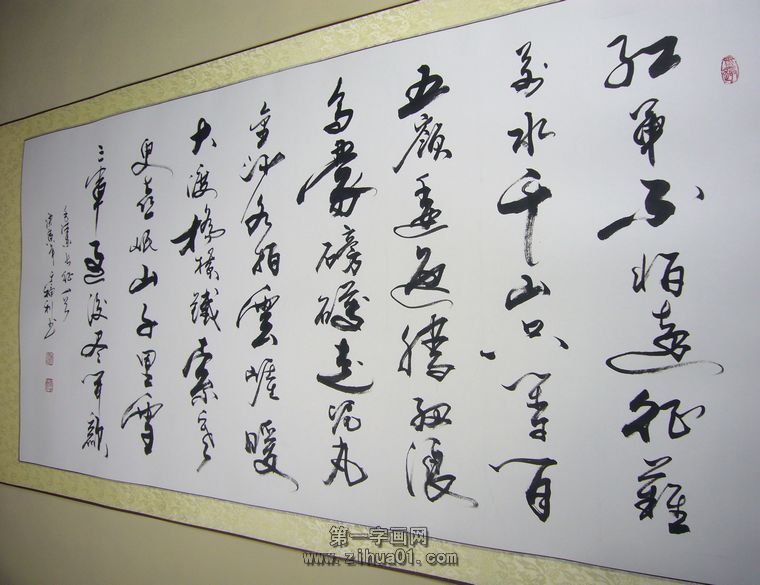 紅軍不怕遠征難
萬水千山只等閒
五嶺逶迤騰細浪
烏蒙磅礴走泥丸
金沙水拍雲崖暖
大渡橋橫鐵索寒
更喜岷山千里雪
三軍過後盡開顏
長征一首
書
第一字画网
www.zihua01.com